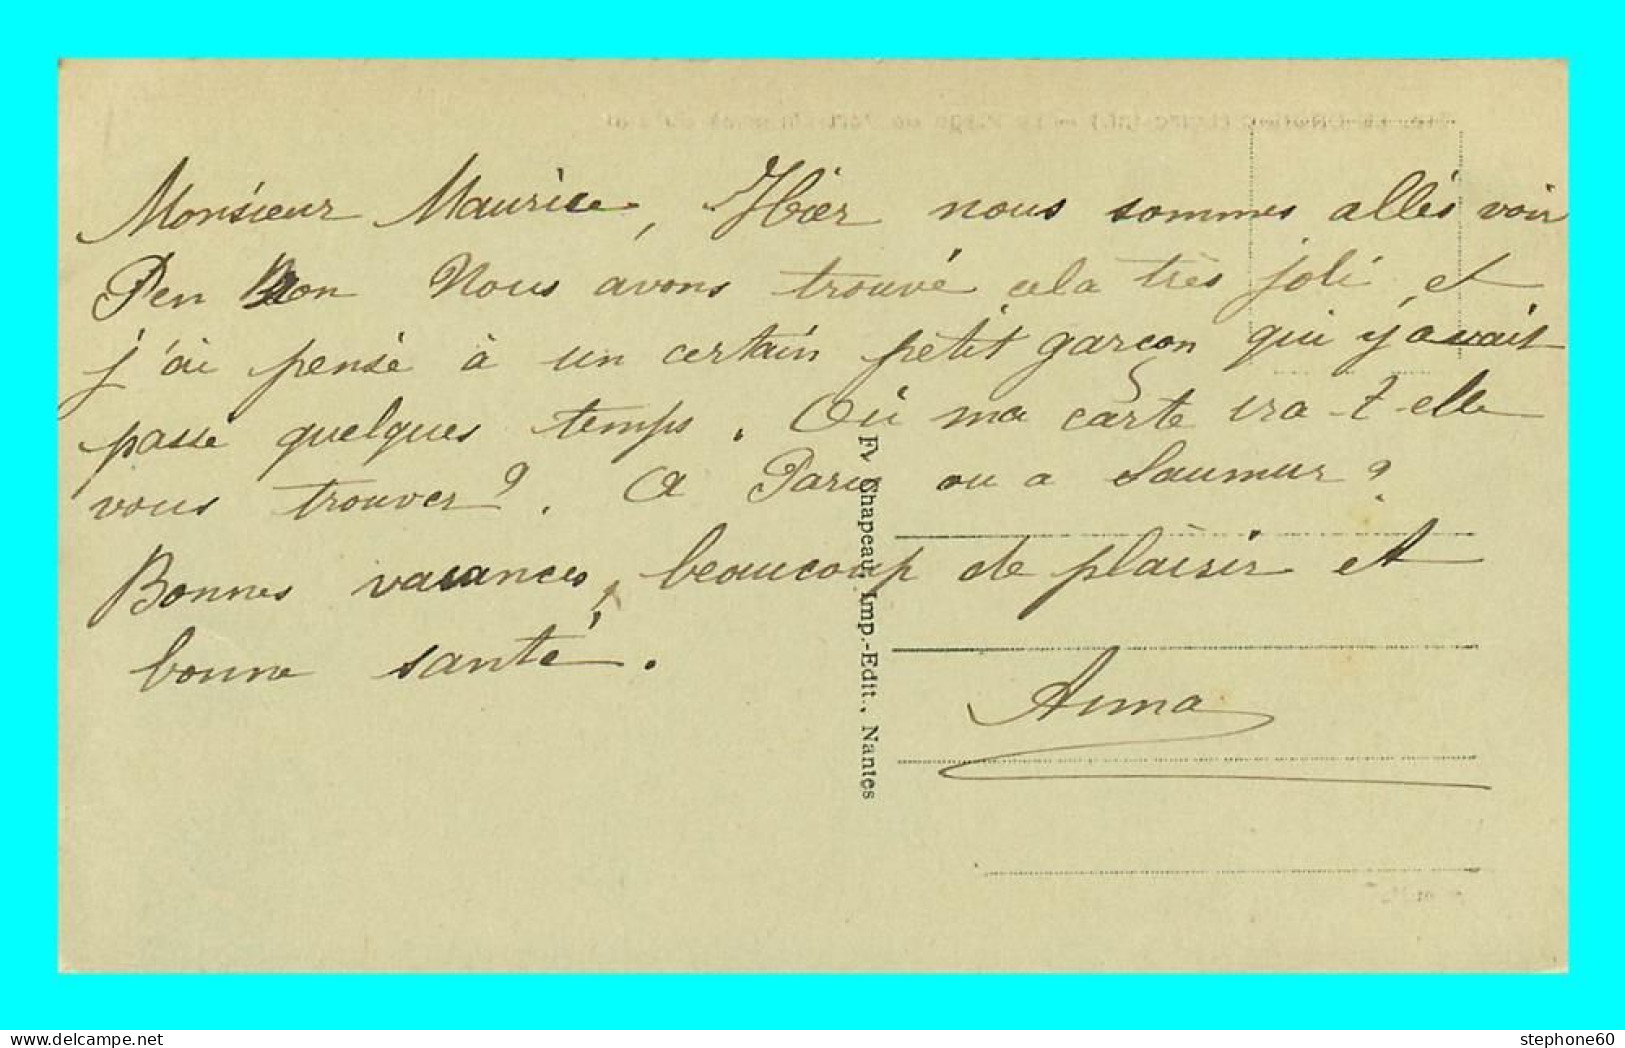 Monsieur Maurice, Hier nous sommes allés voir
Pen Bron Nous avons trouvé cela très joli et
j'ai pensé à un certain petit garçon qui y avait
passé quelques temps. Où ma carte ira-t-elle
vous trouver?. A Paris ou a Saumur?
Bonnes vacances, beaucoup de plaisir et
bonne santé.
Anna
Fv Chapeau, Imp.-Edit., Nantes
stephone60